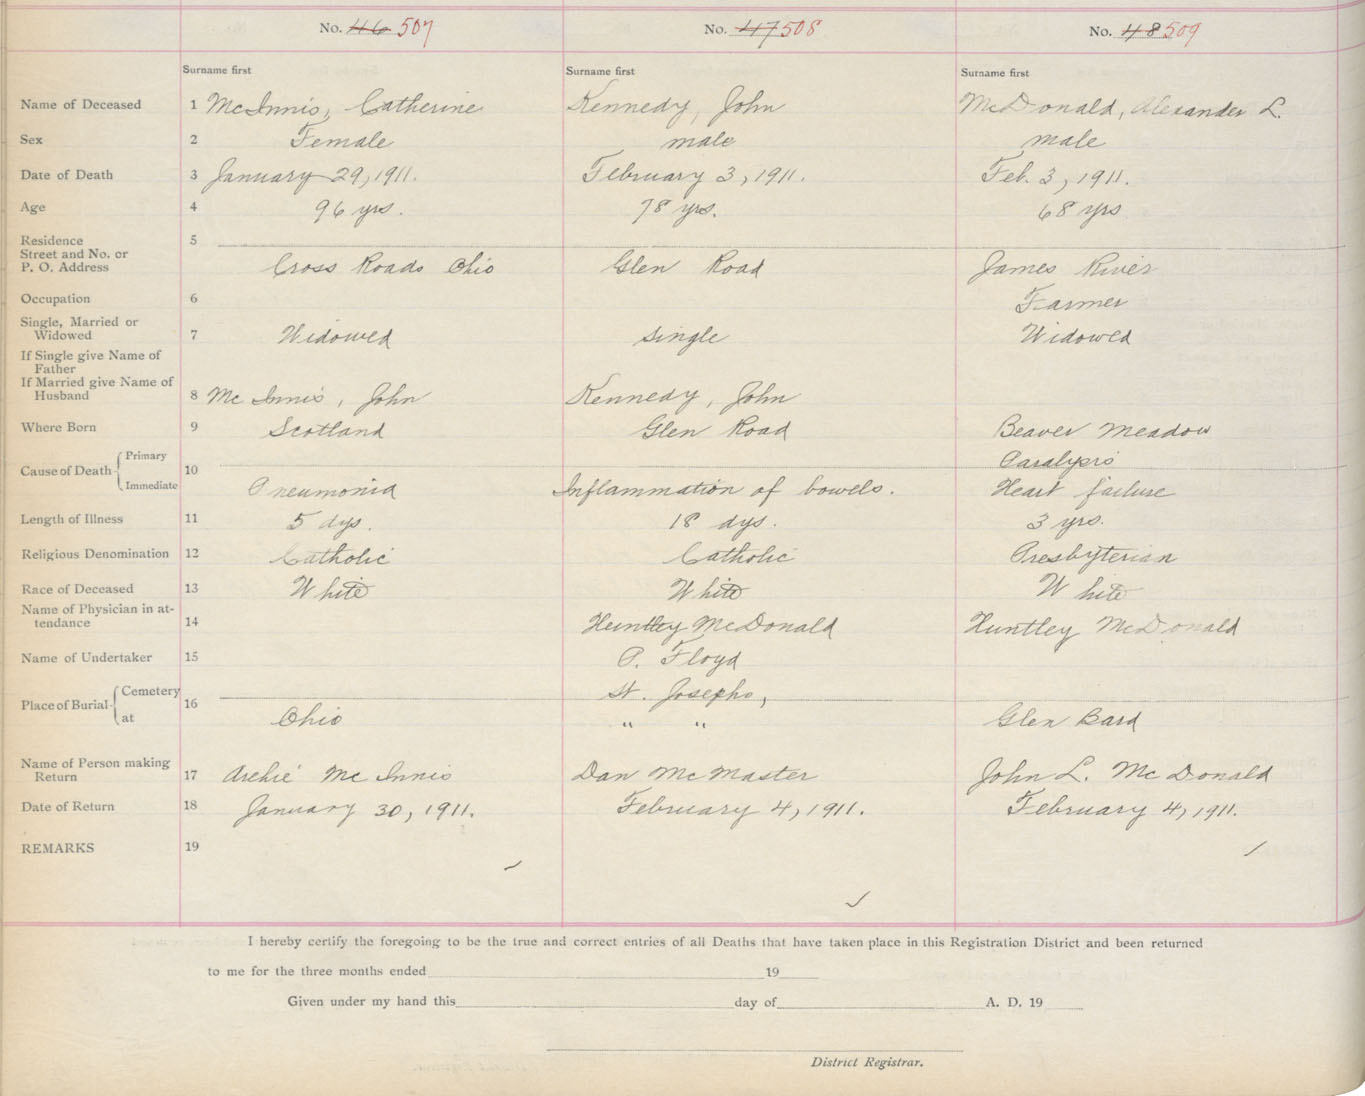 No. 46 507 No. 47 508 No. 48 509
Surname first Surname first Surname first
Name of Deceased 1 McInnis, Catherine Kennedy, John McDonald, Alexander L.
Sex 2 Female male male
Date of Death 3 January 29, 1911. February 3, 1911. Feb. 3, 1911.
Age 4 96 yrs. 78 yrs. 68 yrs
Residence 5
Street and No. or
P. O. Address Cross Roads Ohio Glen Road James River
Occupation 6 Farmer
Single, Married or
Widowed 7 Widowed single Widowed
If Single give Name of
Father
If Married give Name of
Husband 8 Mc Innis, John Kennedy, John
Where Born 9 Scotland Glen Road Beaver Meadow
Cause of Death Primary 10 Paralysis
Immediate Pneumonia Inflammation of bowels. Heart failure
Length of Illness 11 5 dys. 18 dys. 3 yrs.
Religious Denomination 12 Catholic Catholic Presbyterian
Race of Deceased 13 White White White
Name of Physician in at-
tendance 14 Huntley McDonald Huntley McDonald
Name of Undertaker 15 P. Floyd
Place of Burial Cemetery 16 St. Josephs,
at Ohio " " Glen Bard
Name of Person making
Return 17 Archie Mc Innis Dan McMaster John L. McDonald
Date of Return 18 January 30, 1911. February 4, 1911. February 4, 1911.
REMARKS 19
I hereby certify the foregoing to be the true and correct entries of all Deaths that have taken place in this Registration District and been returned
to me for the three months ended 19
Given under my hand this day of A. D. 19
District Registrar.